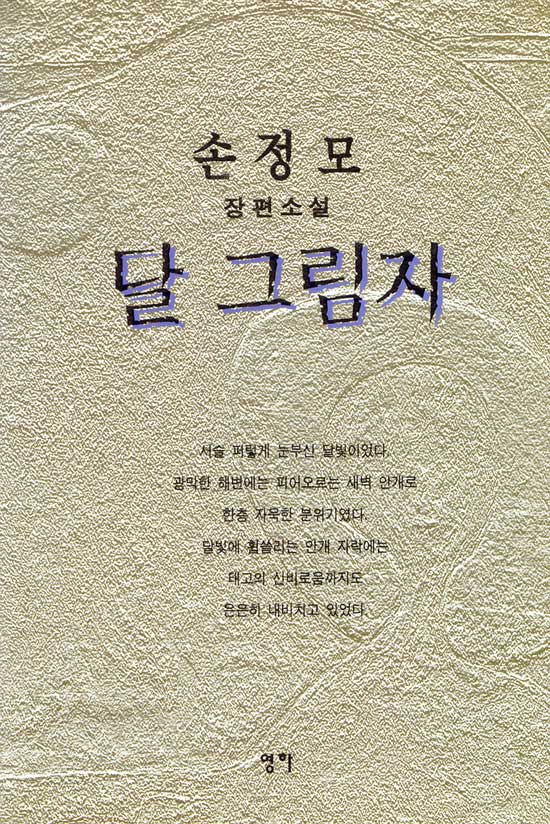 손정모
장편소설
달 그림자
서슬 퍼렇게 눈부신 달빛이었다.
광막한 해변에는 피어오르는 새벽 안개로
한층 자욱한 분위기였다.
달빛에 휩쓸리는 안개 자락에는
태고의 신비로움까지도
은은히 내비치고 있었다.
영하